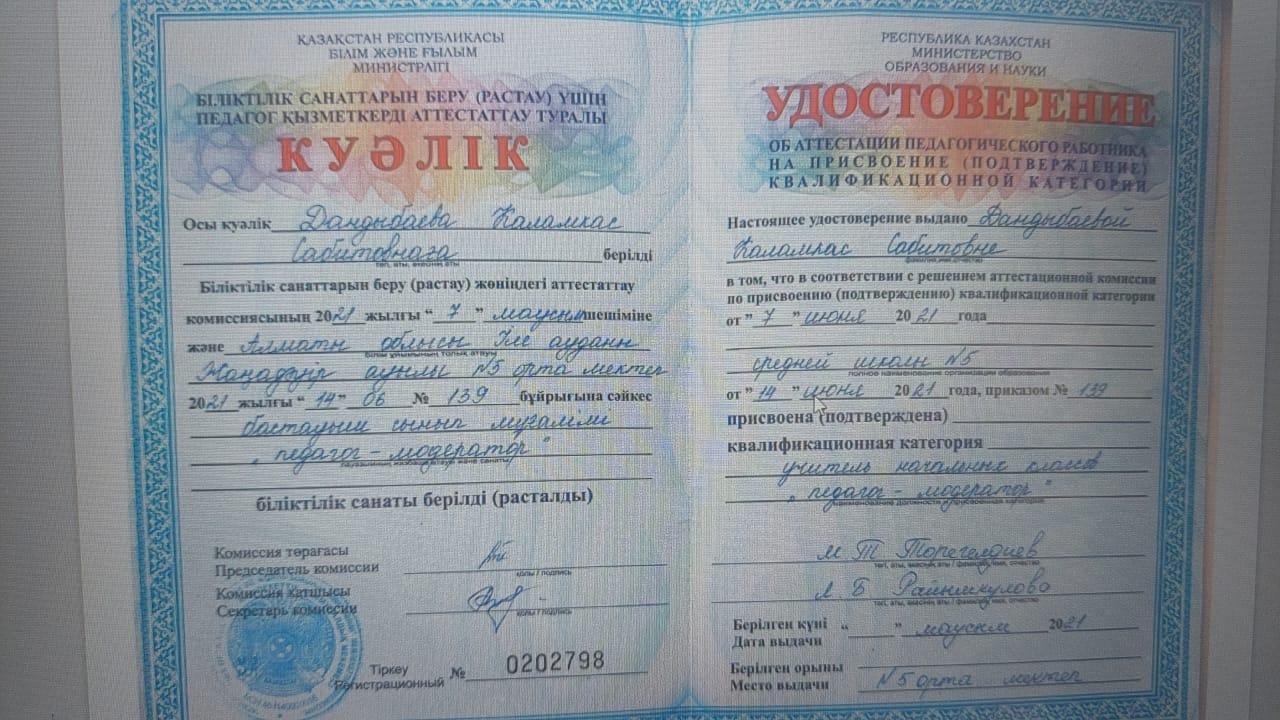 ҚАЗАҚСТАН РЕСПУБЛИКАСЫ
БІЛІМ ЖӘНЕ ҒЫЛЫМ
МИНИСТРЛІГІ
БІЛІКТІЛІК САНАТТАРЫН БЕРУ (РАСТАУ) ҮШІН
ПЕДАГОГ ҚЫЗМЕТКЕРДІ АТТЕСТАТТАУ ТУРАЛЫ
КУӘЛІК
Осы куәлік Дандыбаева Каламкас
Сабитовнаға берілді
тегі, аты, әкесінің аты
Біліктілік санаттарын беру (растау) жөніндегі аттестаттау
комиссиясының 2021 жылғы "7" маусым шешіміне
және Алматы облысы Іле ауданы
білім ұйымының толық атауы
Жаңадәуір ауылы N5 орта мектеп
2021 жылғы "14" 06 № 139 бұйрығына сәйкес
бастауыш сынып мұғалімі
"педагог-модератор"
біліктілік санаты берілді (расталды)
Комиссия төрағасы
Председатель комиссии
қолы / подпись
Комиссия хатшысы
Секретарь комиссии
қолы / подпись
Тіркеу
Регистрационный № 0202798
РЕСПУБЛИКА КАЗАХСТАН
МИНИСТЕРСТВО
ОБРАЗОВАНИЯ И НАУКИ
УДОСТОВЕРЕНИЕ
ОБ АТТЕСТАЦИИ ПЕДАГОГИЧЕСКОГО РАБОТНИКА
НА ПРИСВОЕНИЕ (ПОДТВЕРЖДЕНИЕ)
КВАЛИФИКАЦИОННОЙ КАТЕГОРИИ
Настоящее удостоверение выдано Дандыбаевой
Каламкас Сабитовне
фамилия, имя, отчество
в том, что в соответствии с решением аттестационной комиссии
по присвоению (подтверждению) квалификационной категории
от "7" июня 2021 года
средней школы N5
полное наименование организации образования
от "14" июня 2021 года, приказом № 139
присвоена (подтверждена)
квалификационная категория
учитель начальных классов
"педагог-модератор"
наименование должности и присвоенная категория
М Т Торегелдиев
тегі, аты, әкесінің аты / фамилия, имя, отчество
Л Б Райымкулова
тегі, аты, әкесінің аты / фамилия, имя, отчество
Берілген күні
Дата выдачи " " маусым 2021
Берілген орыны
Место выдачи N5 орта мектеп